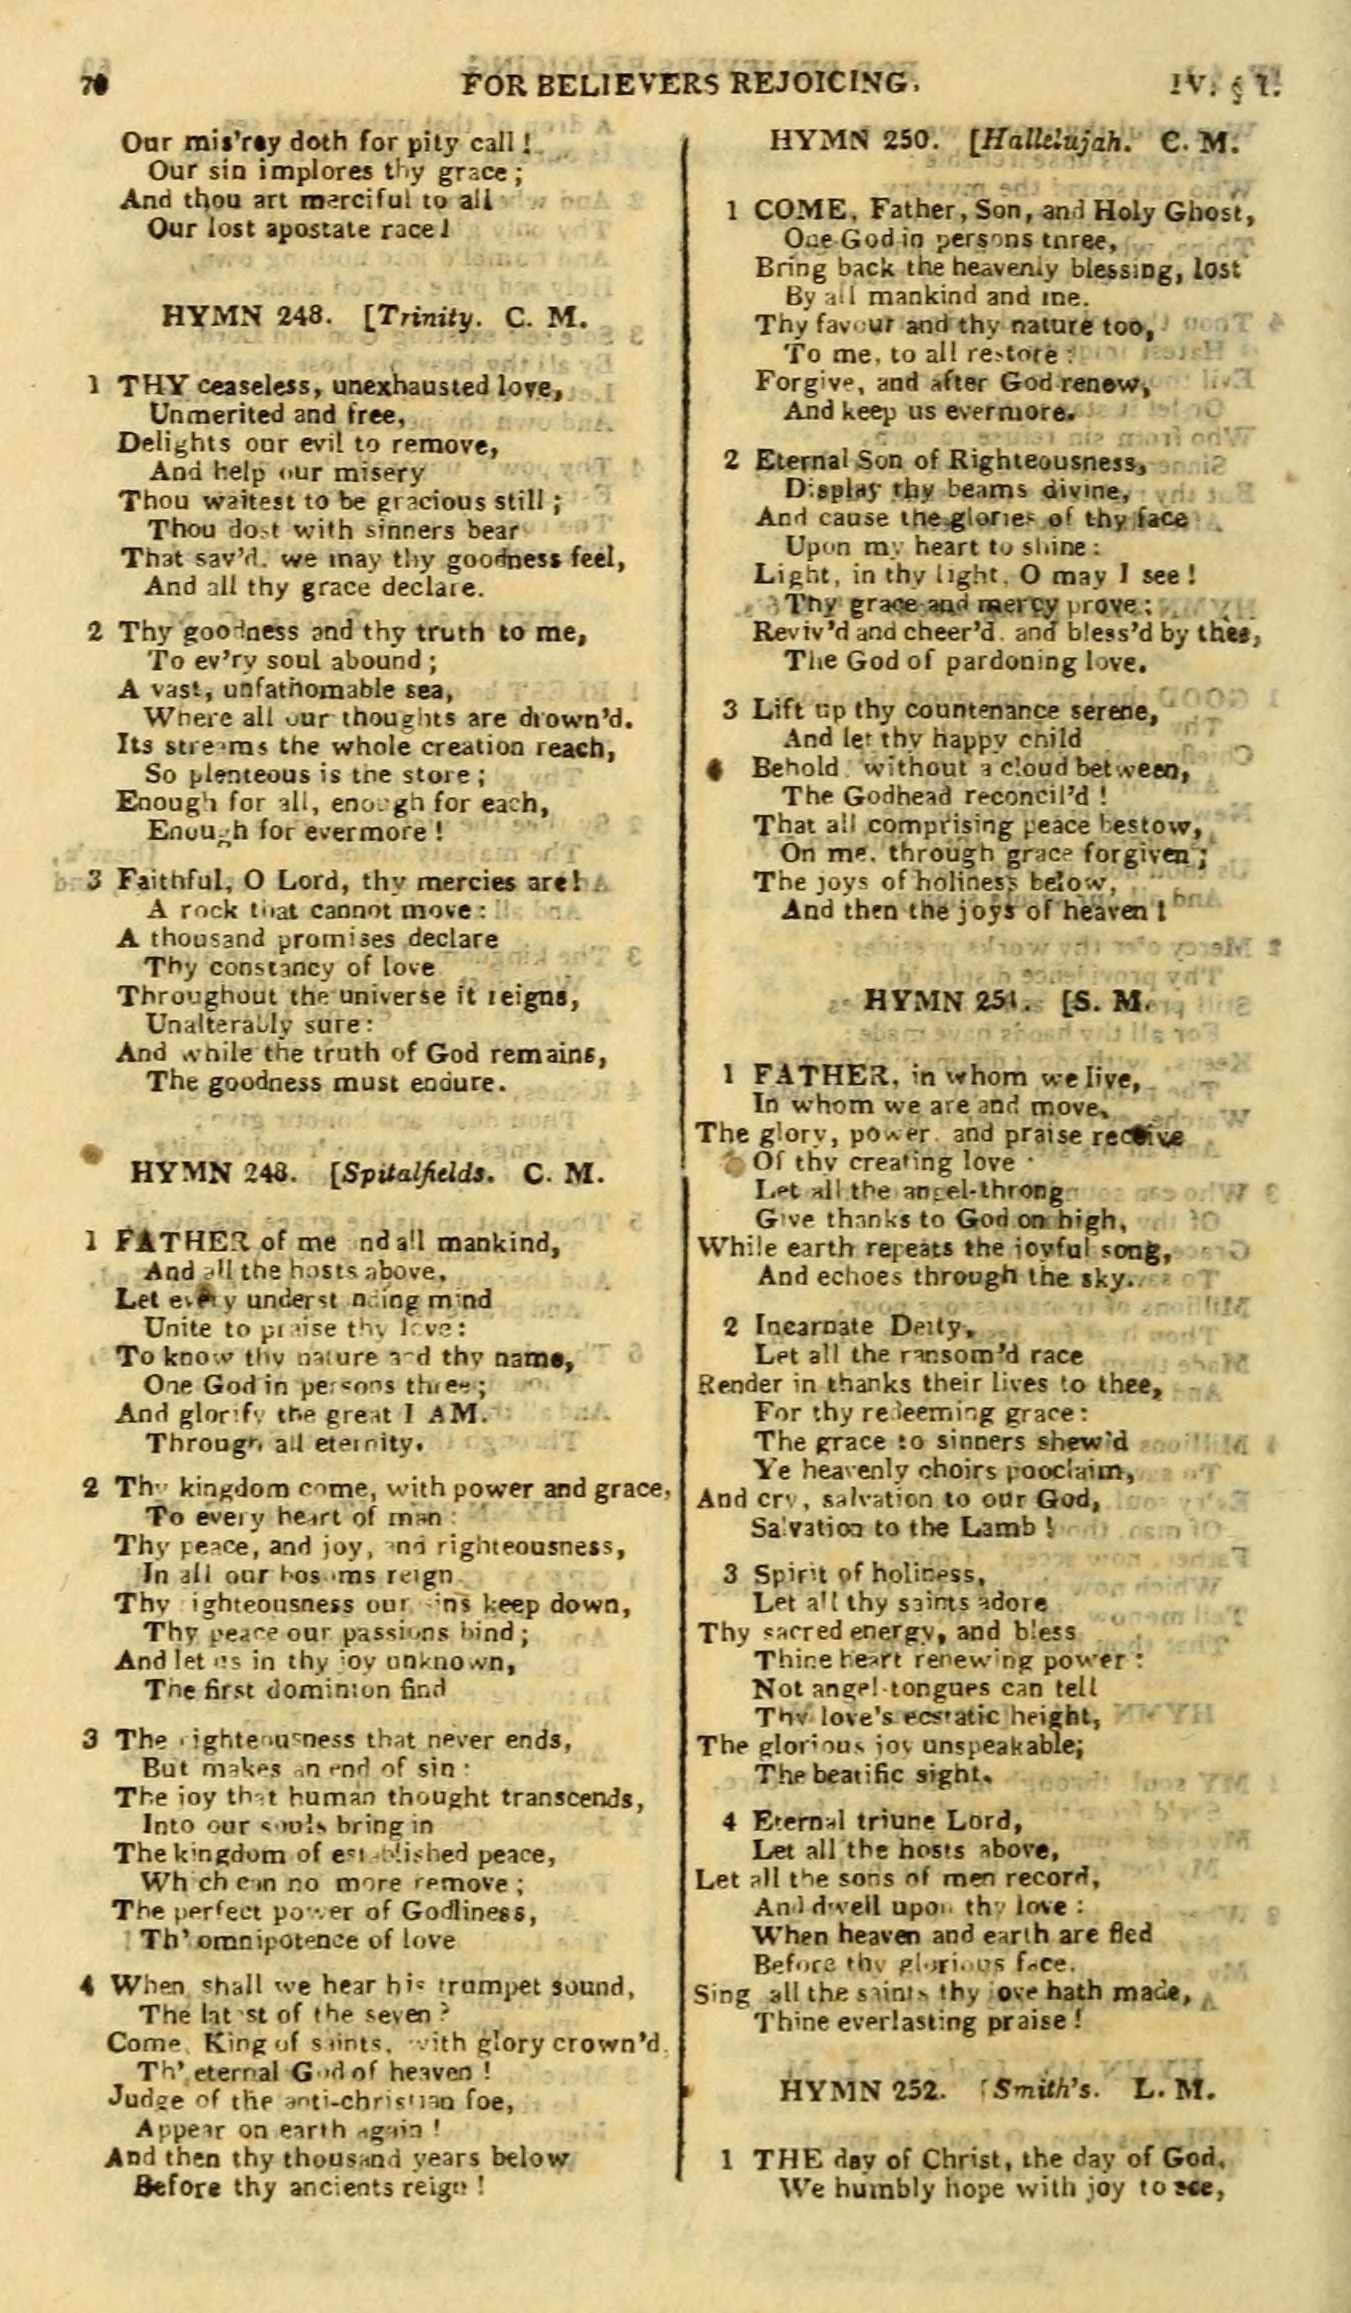 70 FOR BELIEVERS REJOICING. IV. § 1.
Our mis'ry doth for pity call!
Our sin implores thy grace;
And thou art merciful to all
Our lost apostate race!
HYMN 248. [Trinity. C. M.
1 THY ceaseless, unexhausted love,
Unmerited and free,
Delights our evil to remove,
And help our misery
Thou waitest to be gracious still;
Thou dost with sinners bear
That sav'd. we may thy goodness feel,
And all thy grace declare.
2 Thy goodness and thy truth to me,
To ev'ry soul abound;
A vast, unfathomable sea,
Where all our thoughts are drown'd.
Its streams the whole creation reach,
So plenteous is the store;
Enough for all, enough for each,
Enough for evermore!
3 Faithful, O Lord, thy mercies are!
A rock that cannot move:
A thousand promises declare
Thy constancy of love
Throughout the universe it reigns,
Unalterably sure:
And while the truth of God remains,
The goodness must endure.
HYMN 248. [Spitalfields. C. M.
1 FATHER of me and all mankind,
And all the hosts above,
Let every understanding mind
Unite to praise thy love:
To know thy nature and thy name,
One God in persons three;
And glorify the great I AM.
Through all eternity.
2 Thy kingdom come, with power and grace,
To every heart of man:
Thy peace, and joy, and righteousness,
In all our bosoms reign
Thy righteousness our sins keep down,
Thy peace our passions bind;
And let us in thy joy unknown,
The first dominion find
3 The righteousness that never ends,
But makes an end of sin:
The joy that human thought transcends,
Into our souls bring in
The kingdom of established peace,
Which can no more remove;
The perfect power of Godliness,
Th' omnipotence of love
4 When shall we hear his trumpet sound,
The latest of the seven?
Come, King of saints, with glory crown'd,
Th' eternal God of heaven!
Judge of the anti-christian foe,
Appear on earth again!
And then thy thousand years below
Before thy ancients reign!
HYMN 250. [Hallelujah. C. M.
1 COME, Father, Son, and Holy Ghost,
One God in persons three,
Bring back the heavenly blessing, lost
By all mankind and me.
Thy favour and thy nature too,
To me, to all restore:
Forgive, and after God renew,
And keep us evermore.
2 Eternal Son of Righteousness,
Display thy beams divine,
And cause the glories of thy face
Upon my heart to shine:
Light, in thy light, O may I see!
Thy grace and mercy prove;
Reviv'd and cheer'd and bless'd by thee,
The God of pardoning love.
3 Lift up thy countenance serene,
And let thy happy child
Behold without a cloud between,
The Godhead reconcil'd!
That all comprising peace bestow,
On me, through grace forgiven;
The joys of holiness below,
And then the joys of heaven!
HYMN 251. [S. M.
1 FATHER, in whom we live,
In whom we are and move,
The glory, power and praise receive
Of thy creating love
Let all the angel-throng
Give thanks to God on high,
While earth repeats the joyful song,
And echoes through the sky.
2 Incarnate Deity,
Let all the ransom'd race
Render in thanks their lives to thee,
For thy redeeming grace:
The grace to sinners shew'd
Ye heavenly choirs pooclaim,
And cry, salvation to our God,
Salvation to the Lamb!
3 Spirit of holiness,
Let all thy saints adore
Thy sacred energy, and bless
Thine heart renewing power:
Not angel-tongues can tell
Thy love's ecstatic height,
The glorious joy unspeakable;
The beatific sight.
4 Eternal triune Lord,
Let all the hosts above,
Let all the sons of men record,
And dwell upon thy love:
When heaven and earth are fled
Before thy glorious face.
Sing all the saints thy love hath made,
Thine everlasting praise!
HYMN 252. [Smith's. L. M.
1 THE day of Christ, the day of God,
We humbly hope with joy to see,